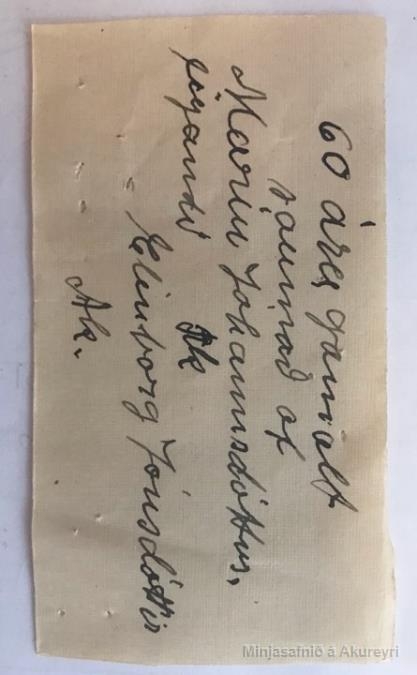 60 ára gamalt
saumað af
Maríu Jóhannsdóttur,
Ak
eigandi
Elinborg Jónsdóttir
Ak.
Minjasafnið á Akureyri